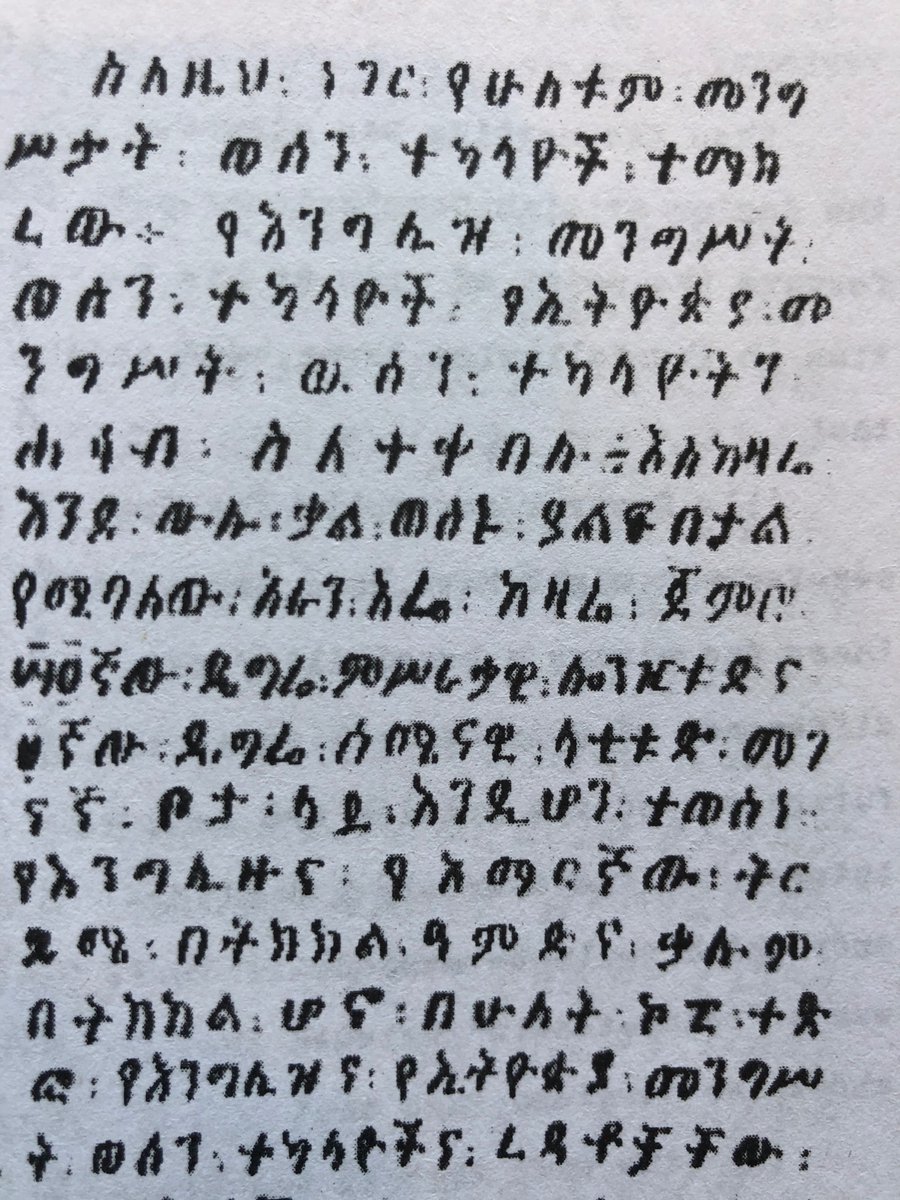 ስለዚህ፡ ነገር፡ የሁለቱም፡ መንግ
ሥታት፡ ወሰን፡ ተካላዮች፡ ተማክ
ረው። የእንግሊዝ፡ መንግሥት፡
ወሰን፡ ተካላዮች፡ የኢትዮጵያ፡ መ
ንግሥት፡ ወሰን፡ ተካላዮትን
ሐሳብ፡ ስለተቀበሉ። እስከዛሬ
እንደ፡ ውሉ፡ ቃል፡ ወሰኑ፡ ያልፍበታል
የሚባለው፡ አሁን፡ እፊፊ፡ ከዛሬ፡ ጀምሮ
ኛው፡ ዲግሬ፡ ምሥራቃዊ፡ ሎንዢቱድና
ኛው፡ ዲግሬ፡ ሰሜናዊ፡ ላቲቱድ፡ መገ
ናኛ፡ ቦታ፡ ላይ፡ እንዲሆን፡ ተወሰነ።
የእንግሊዙና፡ የአማርኛው፡ ትር
ጁሜ፡ በትክክል፡ ዓምድና፡ ቃሉም
በትክክል፡ ሆኖ፡ በሁለት፡ ኮፒ፡ ተጽ
ፎ፡ የእንግሊዝና፡ የኢትዮጵያ፡ መንግሥ
ት፡ ወሰን፡ ተካላዮችና፡ ረዳቶቻቸው፡